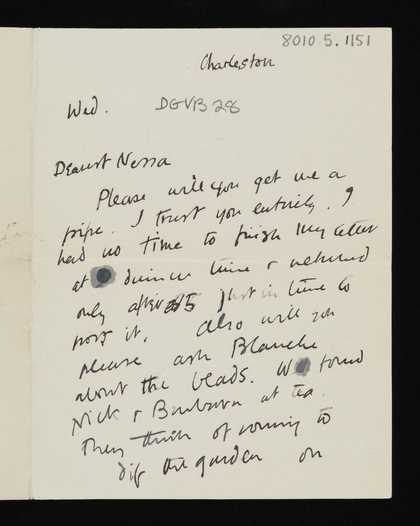 8010 5. 1151
Charleston
Wed.
DGVB 28
Dearest Nessa
Please will you get me a
pipe. I trust you entirely. I
had no time to finish my letter
at dinner time & returned
only after 5 just in time to
post it. Also will you
please ask Blanche
about the beads. We found
Nick & Barbara at tea.
They think of coming to
dig the garden on